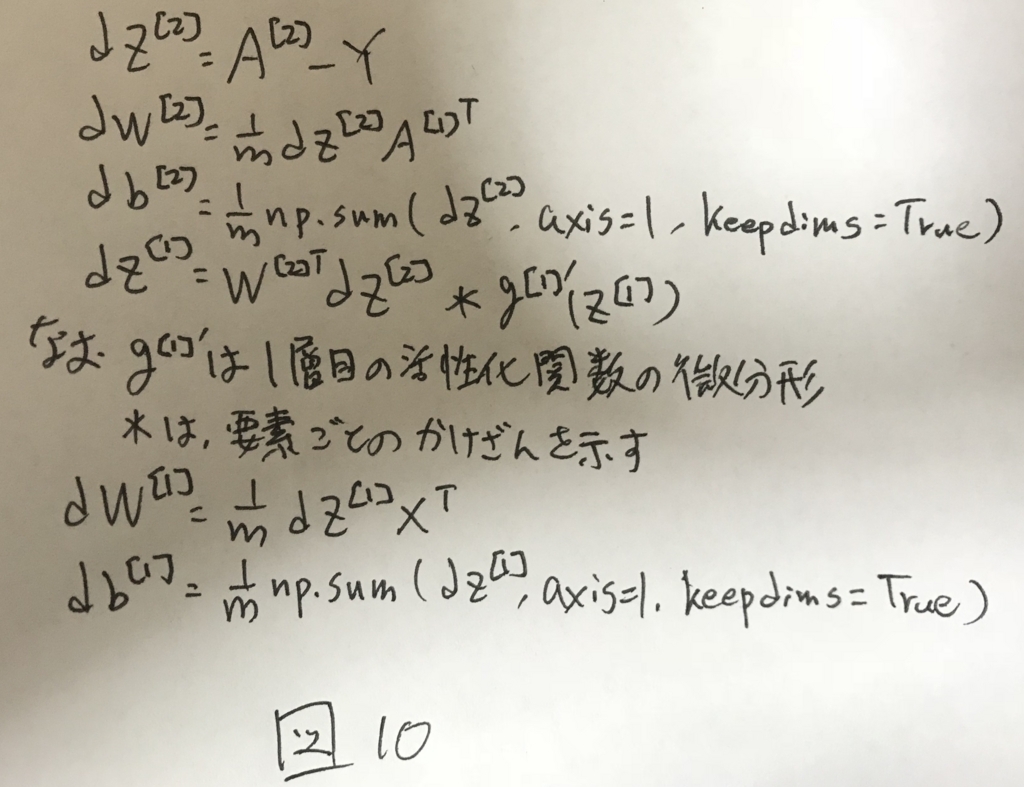 dZ^[2] = A^[2] - Y
dW^[2] = 1/m dZ^[2] A^[1]T
db^[2] = 1/m np.sum(dZ^[2], axis=1, keepdims=True)
dZ^[1] = W^[2]T dZ^[2] * g^[1]'(Z^[1])
なお g^[1]'は1層目の活性化関数の微分形
*は,要素ごとのかけざんを示す
dW^[1] = 1/m dZ^[1] X^T
db^[1] = 1/m np.sum(dZ^[1], axis=1, keepdims=True)
図 10